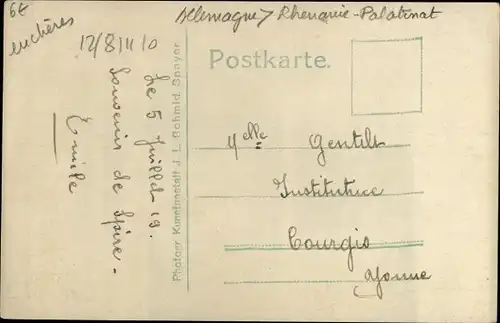 6€
enchères
Allemagne > Rhenanie-Palatinat
12/8/110
Postkarte.
Le 5 Juillet 19.
Souvenir de Spire.
Emile
Photogr. Kunstanstalt J. L. Schmid, Speyer
Melle Gentilt
Institutrice
Courgis
Yonne